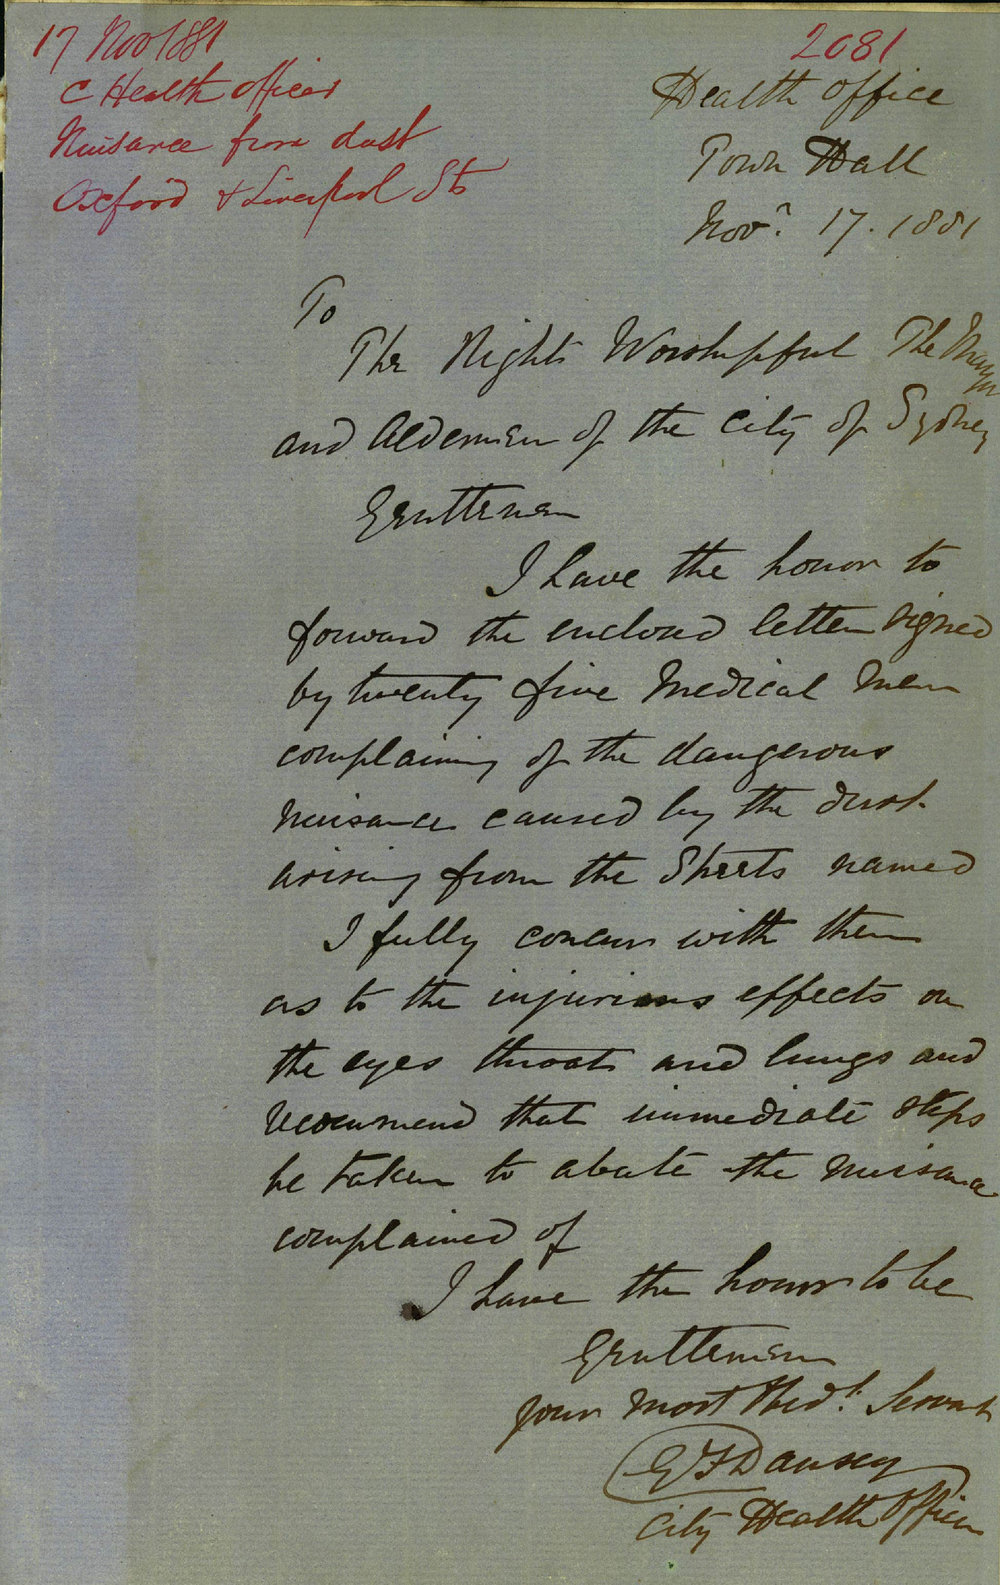 17 Nov 1881
C Health Officer
Nuisance from dust
Oxford & Liverpool Sts
2081
Health Office
Town Hall
Novr. 17. 1881
To
The Right Worshipful The Mayor
and Aldermen of the City of Sydney
Gentlemen
I have the honor to
forward the enclosed letter signed
by twenty five Medical Men
complaining of the dangerous
nuisance caused by the dust
arising from the Streets named
I fully concur with them
as to the injurious effects on
the eyes throat and lungs and
recommend that immediate steps
be taken to abate the nuisance
complained of
I have the honor to be
Gentlemen
your most Obedt. Servant
G F Dansey
City Health Officer